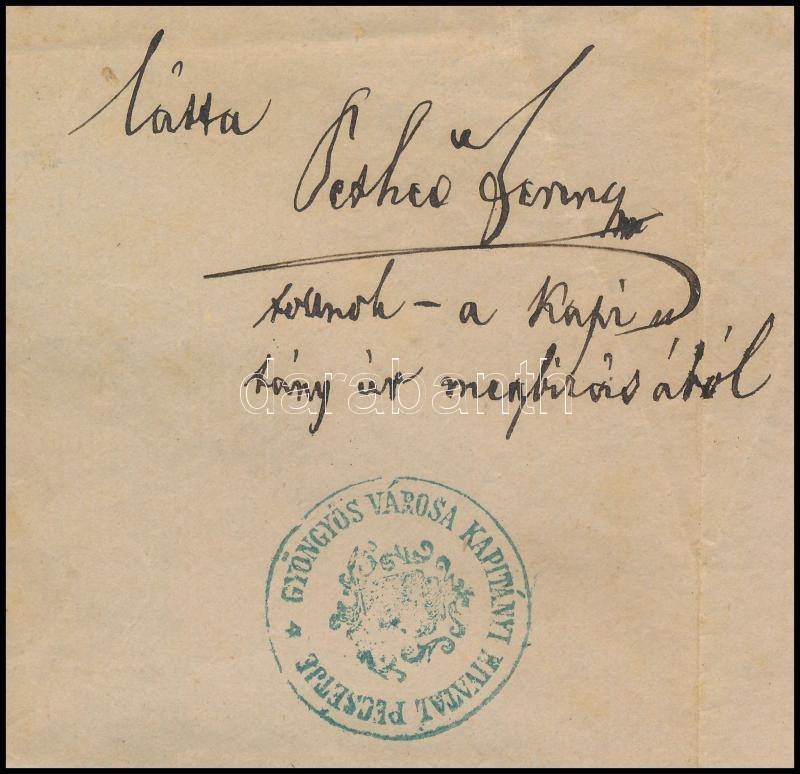 látta
Pethes Ferencz
tollnok - a kapi
tány úr megbizásából
darabanth
GYÖNGYÖS VÁROSA KAPITÁNYI HIVATAL PECSETJE